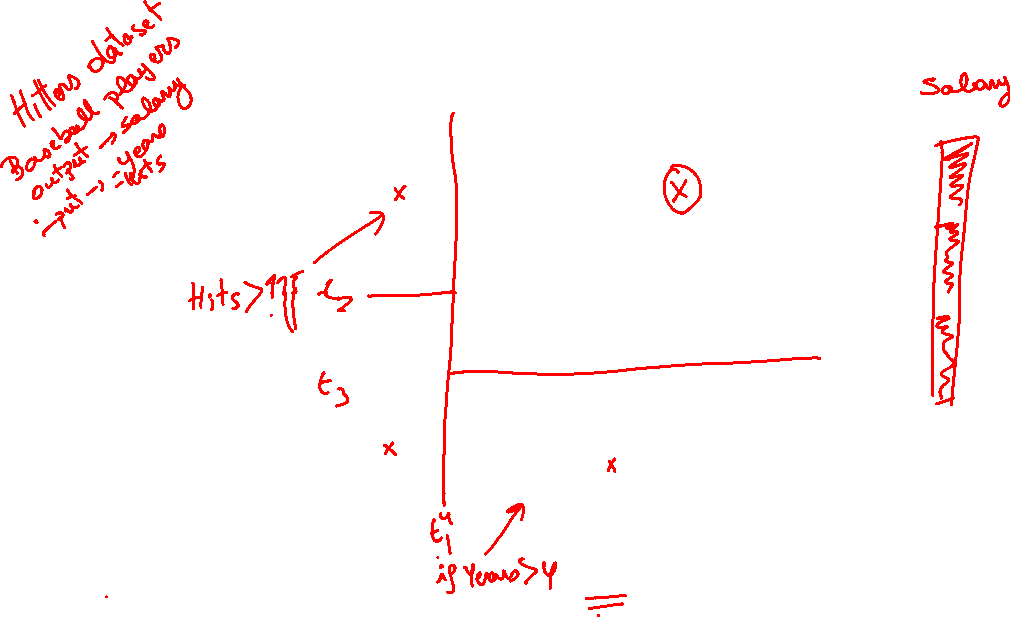 Hitters dataset
Baseball players
output → salary
input → Years
Hits
Salary
x
x
Hits > ?
t2
t3
x
x
t1
4
if Years > 4